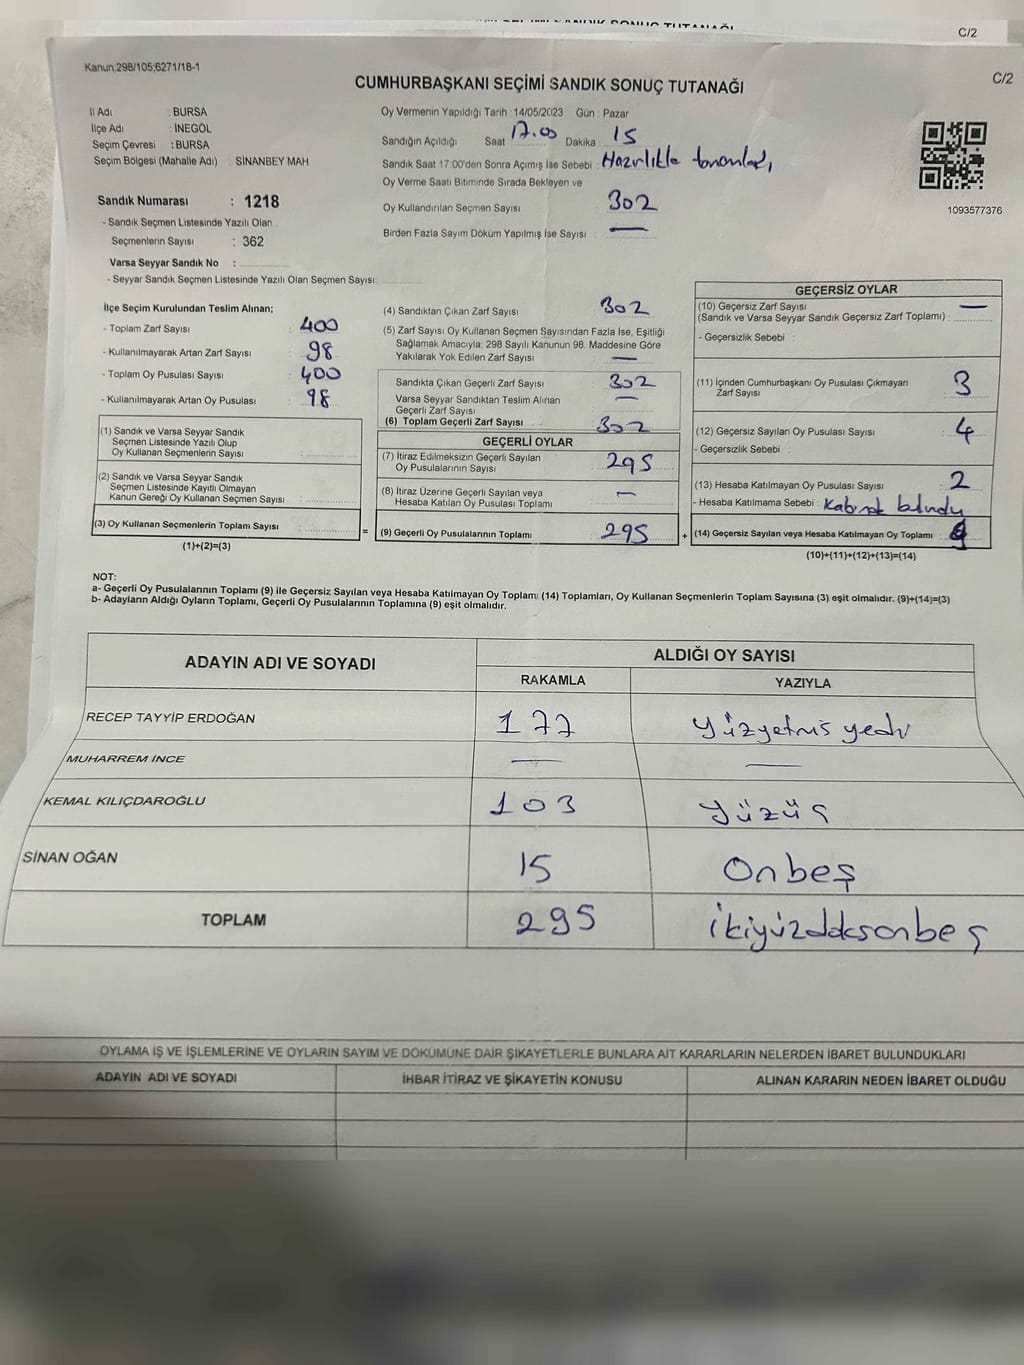 C/2
Kanun;298/105;6271/18-1
C/2
CUMHURBAŞKANI SEÇİMİ SANDIK SONUÇ TUTANAĞI
İl Adı : BURSA
İlçe Adı : İNEGÖL
Seçim Çevresi : BURSA
Seçim Bölgesi (Mahalle Adı) : SİNANBEY MAH
Oy Vermenin Yapıldığı Tarih :14/05/2023 Gün : Pazar
Sandığın Açıldığı Saat 17.00 Dakika 15
Sandık Saat 17.00'den Sonra Açımış İse Sebebi : Hazırlıkla
Oy Verme Saati Bitiminde Sırada Bekleyen ve
Oy Kullandırılan Seçmen Sayısı : 302
Birden Fazla Sayım Döküm Yapılmış İse Sayısı : —
1093577376
Sandık Numarası : 1218
- Sandık Seçmen Listesinde Yazılı Olan
Seçmenlerin Sayısı : 362
Varsa Seyyar Sandık No :
- Seyyar Sandık Seçmen Listesinde Yazılı Olan Seçmen Sayısı:
İlçe Seçim Kurulundan Teslim Alınan;
- Toplam Zarf Sayısı : 400
- Kullanılmayarak Artan Zarf Sayısı : 98
- Toplam Oy Pusulası Sayısı : 400
- Kullanılmayarak Artan Oy Pusulası : 98
(1) Sandık ve Varsa Seyyar Sandık
Seçmen Listesinde Yazılı Olup
Oy Kullanan Seçmenlerin Sayısı :
(2) Sandık ve Varsa Seyyar Sandık
Seçmen Listesinde Kayıtlı Olmayan
Kanun Gereği Oy Kullanan Seçmen Sayısı :
(3) Oy Kullanan Seçmenlerin Toplam Sayısı :
(1)+(2)=(3)
(4) Sandıktan Çıkan Zarf Sayısı : 302
(5) Zarf Sayısı Oy Kullanan Seçmen Sayısından Fazla İse, Eşitliği
Sağlamak Amacıyla; 298 Sayılı Kanunun 98. Maddesine Göre
Yakılarak Yok Edilen Zarf Sayısı : —
Sandıkta Çıkan Geçerli Zarf Sayısı : 302
Varsa Seyyar Sandıktan Teslim Alınan
Geçerli Zarf Sayısı : —
(6) Toplam Geçerli Zarf Sayısı : 302
GEÇERLİ OYLAR
(7) İtiraz Edilmeksizin Geçerli Sayılan
Oy Pusulalarının Sayısı : 295
(8) İtiraz Üzerine Geçerli Sayılan veya
Hesaba Katılan Oy Pusulası Toplamı : —
= (9) Geçerli Oy Pusulalarının Toplamı : 295
GEÇERSİZ OYLAR
(10) Geçersiz Zarf Sayısı —
(Sandık ve Varsa Seyyar Sandık Geçersiz Zarf Toplamı) :
- Geçersizlik Sebebi :
(11) İçinden Cumhurbaşkanı Oy Pusulası Çıkmayan
Zarf Sayısı : 3
(12) Geçersiz Sayılan Oy Pusulası Sayısı : 4
- Geçersizlik Sebebi :
(13) Hesaba Katılmayan Oy Pusulası Sayısı : 2
- Hesaba Katılmama Sebebi :
+ (14) Geçersiz Sayılan veya Hesaba Katılmayan Oy Toplamı :
(10)+(11)+(12)+(13)=(14)
NOT:
a- Geçerli Oy Pusulalarının Toplamı (9) ile Geçersiz Sayılan veya Hesaba Katılmayan Oy Toplam (14) Toplamları, Oy Kullanan Seçmenlerin Toplam Sayısına (3) eşit olmalıdır. (9)+(14)=(3)
b- Adayların Aldığı Oyların Toplamı, Geçerli Oy Pusulalarının Toplamına (9) eşit olmalıdır.
ADAYIN ADI VE SOYADI
ALDIĞI OY SAYISI
RAKAMLA YAZIYLA
RECEP TAYYİP ERDOĞAN 177 Yüzyetmiş yedi
MUHARREM İNCE — —
KEMAL KILIÇDAROĞLU 103 Yüzüç
SİNAN OĞAN 15 Onbeş
TOPLAM 295 ikiyüzdoksanbeş
OYLAMA İŞ VE İŞLEMLERİNE VE OYLARIN SAYIM VE DÖKÜMÜNE DAİR ŞİKAYETLERLE BUNLARA AİT KARARLARIN NELERDEN İBARET BULUNDUKLARI
ADAYIN ADI VE SOYADI İHBAR İTİRAZ VE ŞİKAYETİN KONUSU ALINAN KARARIN NEDEN İBARET OLDUĞU